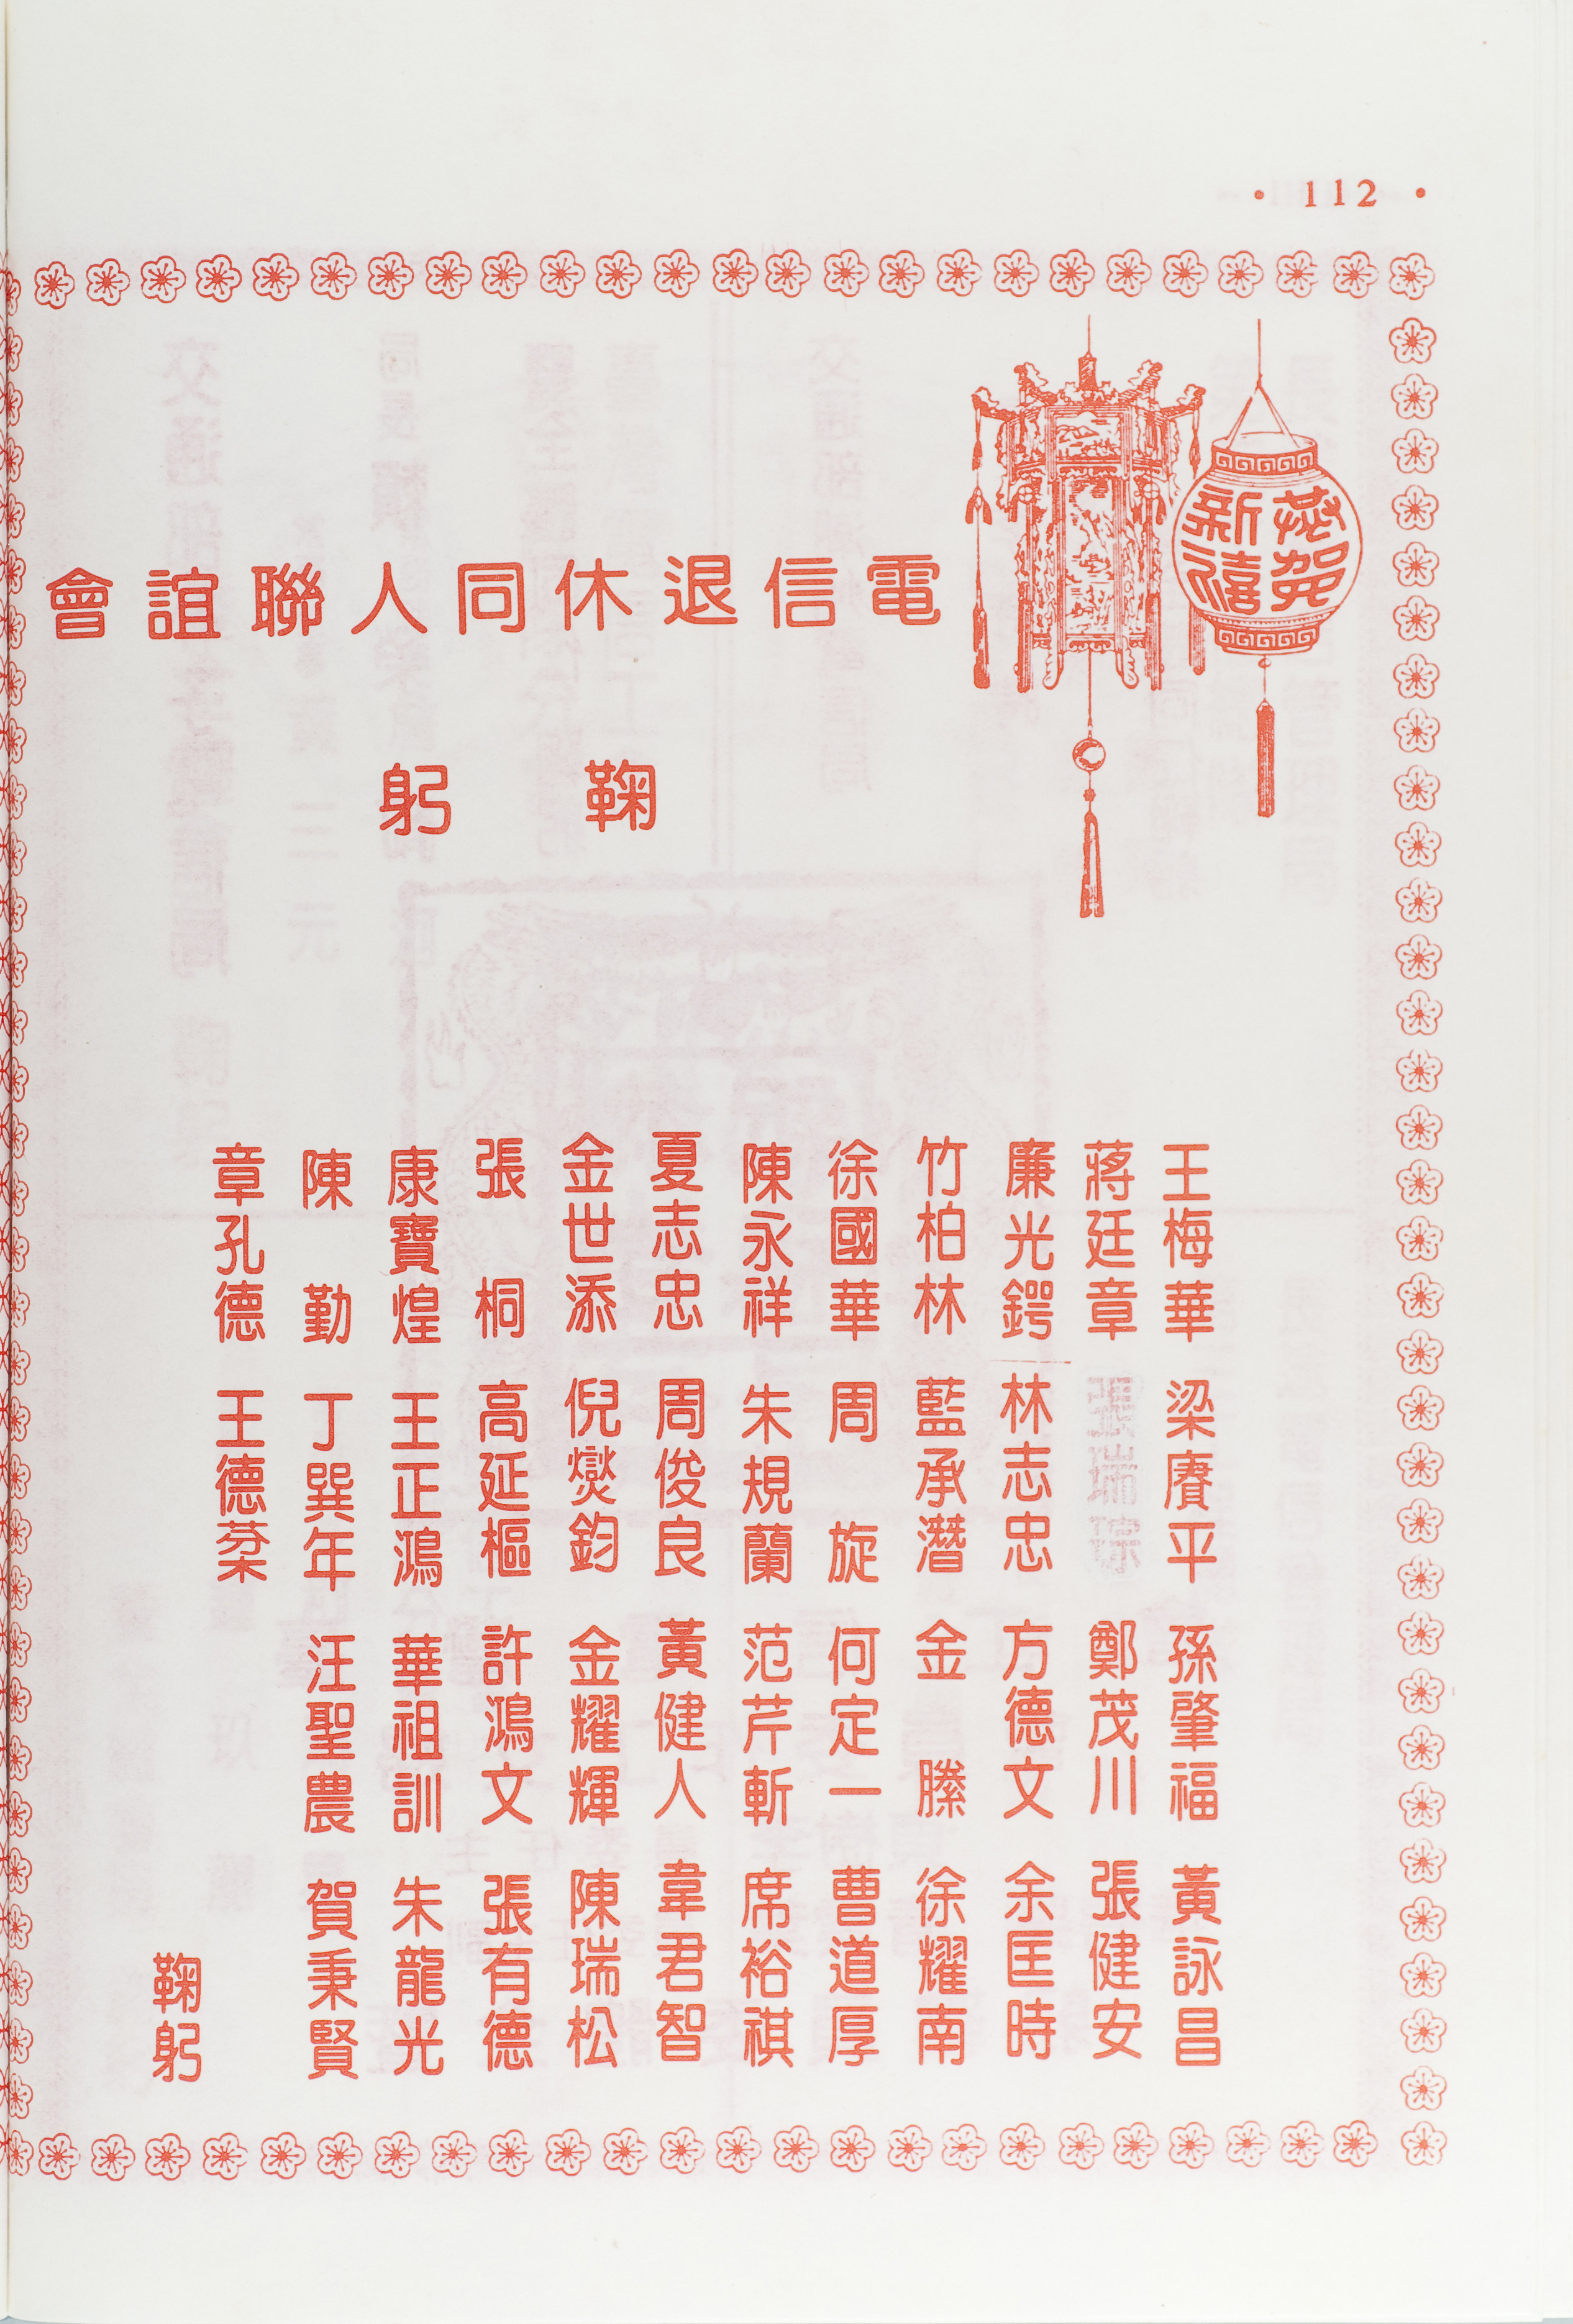 • 112 •
恭賀
新禧
電信退休同人聯誼會
鞠躬
王梅華 梁賡平 孫肇福 黃詠昌
蔣廷章 張瑞琮 鄭茂川 張健安
廉光鍔 林志忠 方德文 余匡時
竹柏林 藍承潛 金 滕 徐耀南
徐國華 周 旋 何定一 曹道厚
陳永祥 朱規蘭 范芹斬 席裕祺
夏志忠 周俊良 黃健人 韋君智
金世添 倪爕鈞 金耀輝 陳瑞松
張 桐 高延樞 許鴻文 張有德
康寶煌 王正鴻 華祖訓 朱龍光
陳 勤 丁巽年 汪聖農 賀秉賢
章孔德 王德棻
鞠躬